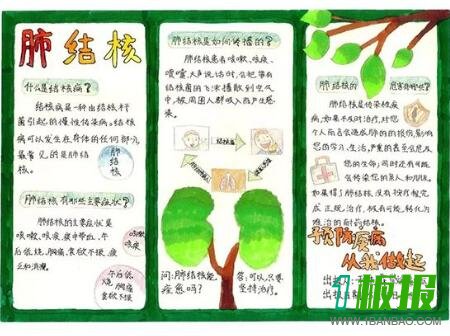 肺结核
什么是结核病?
结核病是一种由结核杆
菌引起的慢性传染病。结核
病可以发生在身体的任何部分,
最常见的是肺结
核。
肺结核
肺结核有哪些主要症状?
肺结核的主要症状是
咳嗽、咳痰、痰中带血、午
后低烧、胸痛、食欲不振、疲
乏和消瘦。
咳嗽
咳痰
午后低
烧、胸痛
食欲不振
肺结核是如何传播的?
肺结核患者咳嗽、咳痰、
喷嚏、大声说话时,会把带有
结核菌的飞沫播散到空气
中,被周围人群吸入而产生感
染。
结核菌
问:肺结核能
治愈吗?
答:可以,只要
坚持治疗。
肺结核的
肺结核是传染性疾
病,如果不及时治疗,对您
个人而言会造成肺的损伤,影响
您的学习、生活,严重的甚至会危及
您的生命;同时还有可能
会传染您的亲人和朋友。
如果得了肺结核,没有按疗程完
成正规治疗,极有可能转化为
难治的耐药结核。
预防疾病
从我做起
板报
WWW.1BANBAO.COM